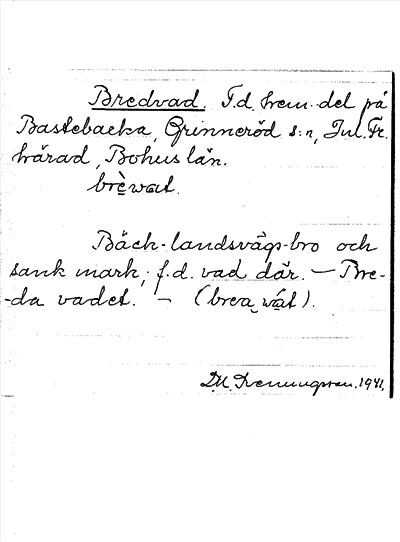 Bredvad. F.d. hem-del på
Bastebacka, Grinneröd s:n, Inl. Fr.
härad, Bohus län.
brèwat.
Bäck-landsvägs-bro och
sank mark; f.d. vad där. — Bre-
-da vadet. — (brea wat).
1941.